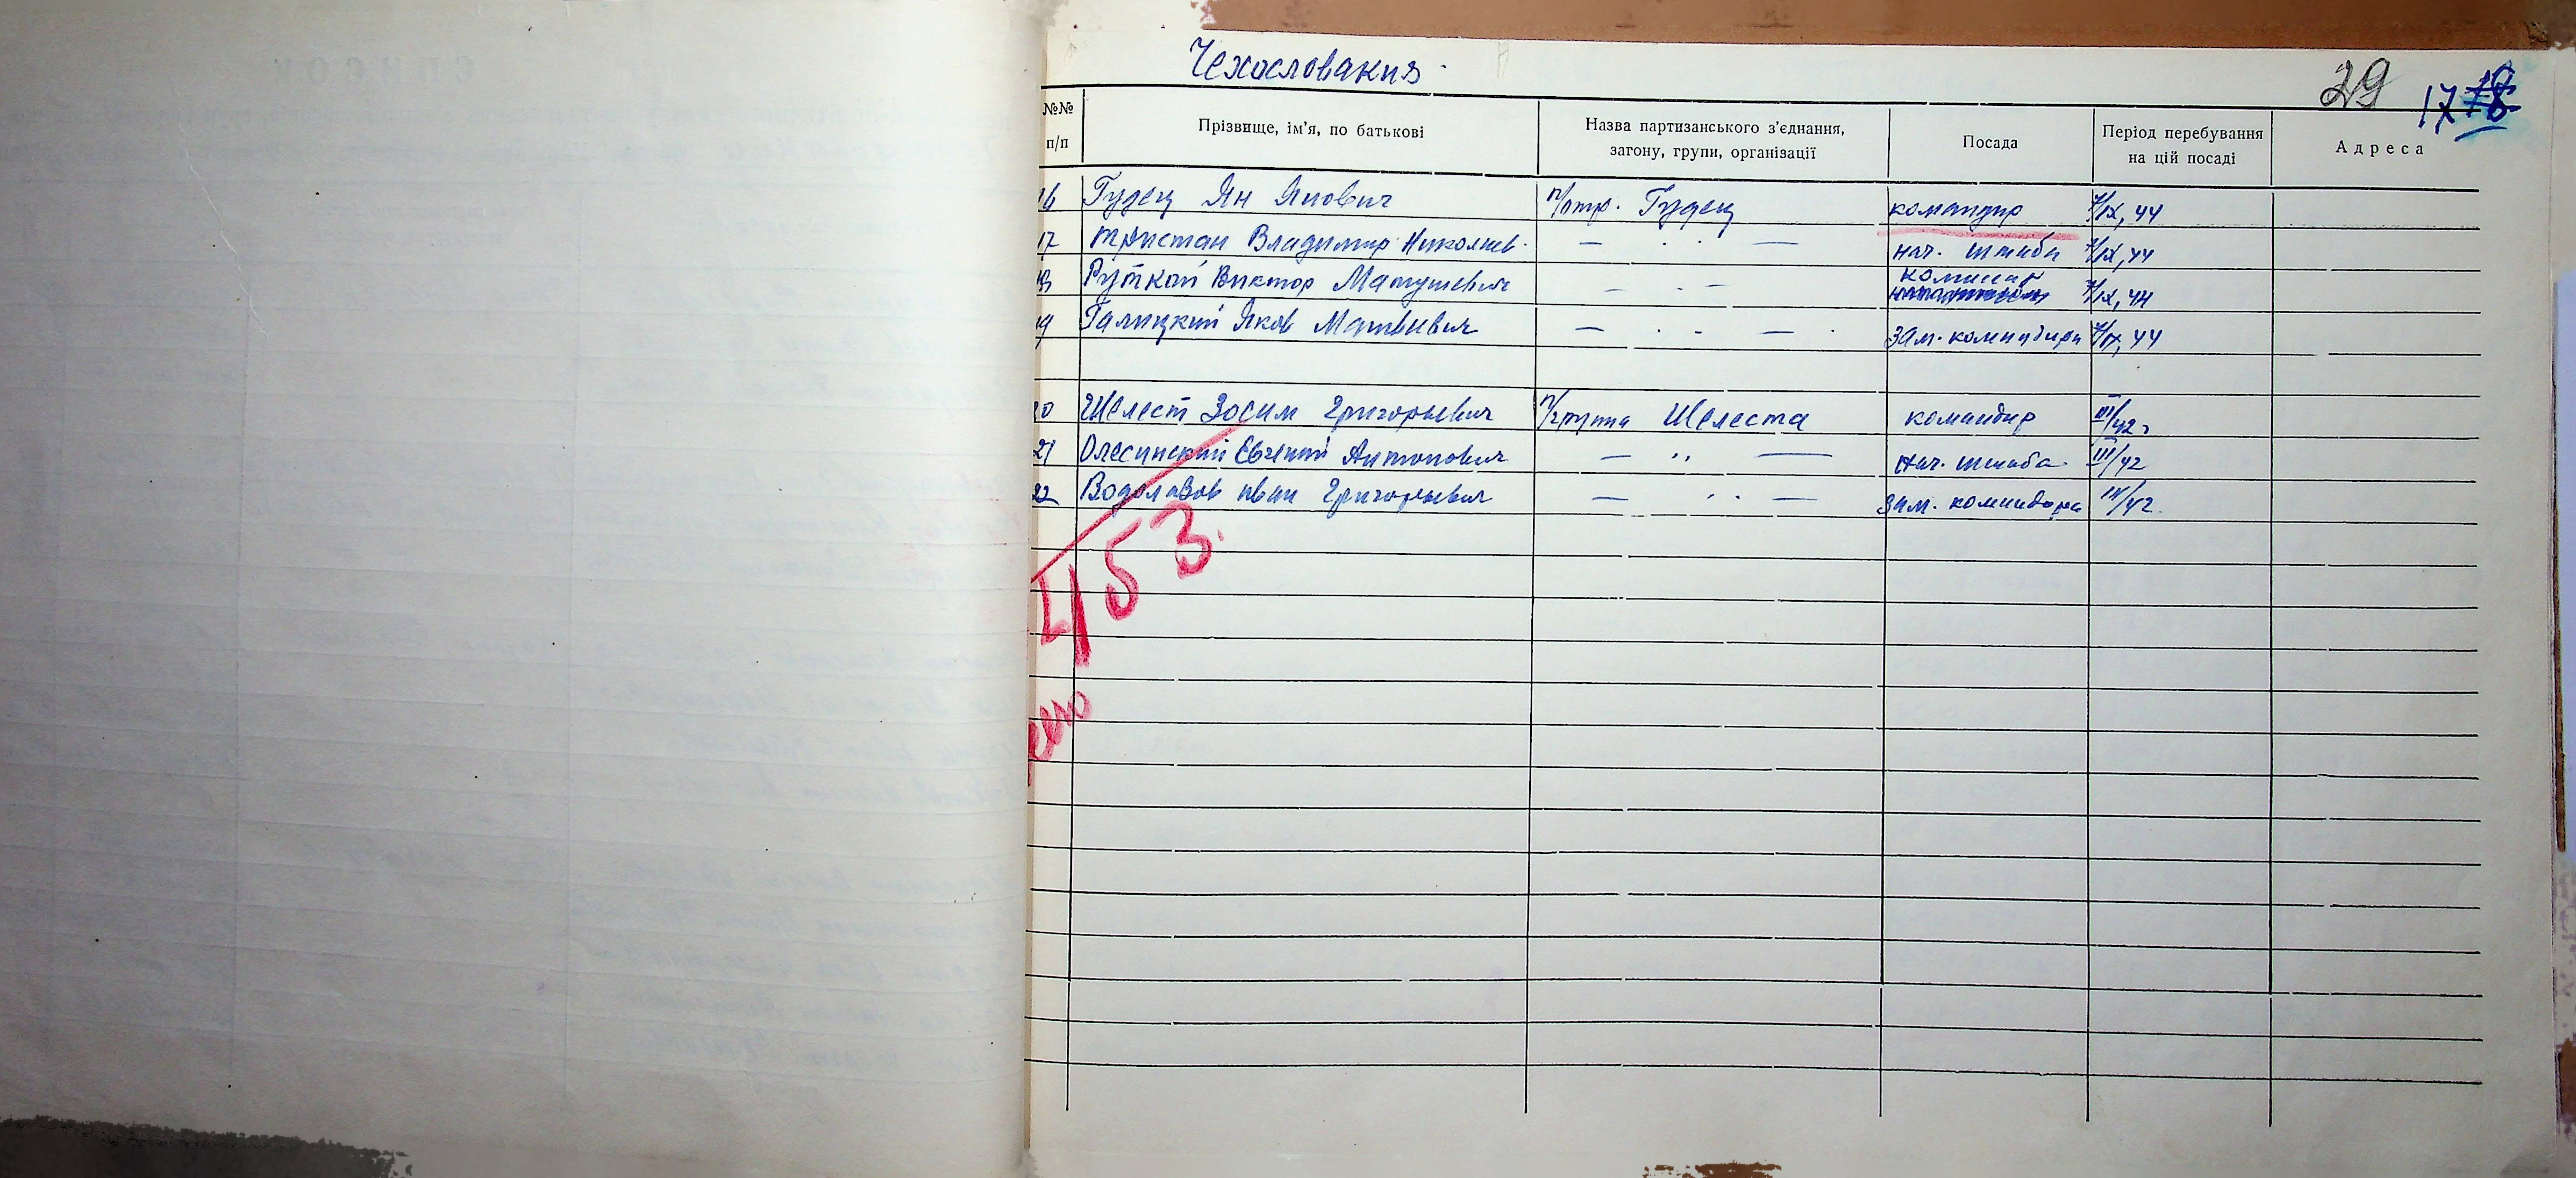 Чехословакия
29 17 18
№№ п/п Прізвище, ім'я, по батькові Назва партизанського з'єднання, загону, групи, організації Посада Період перебування на цій посаді Адреса
16 Гудец Ян Янович п/отр. Гудец командир /IX, 44
17 Тристан Владимир Николаев. — . . — нач. штаба /IX, 44
18 Руткай Виктор Матушевич — . - — комиссар /IX, 44
19 Галицкий Яков Матвеевич — . - — . зам. командира /IX, 44
20 Шелест Зосим Григорьевич п/группа Шелеста командир III/42г
21 Олесинский Евгений Антонович — ,, — нач. штаба III/42
22 Водолазов иван Григорьевич — . . — зам. командира III/42
453.